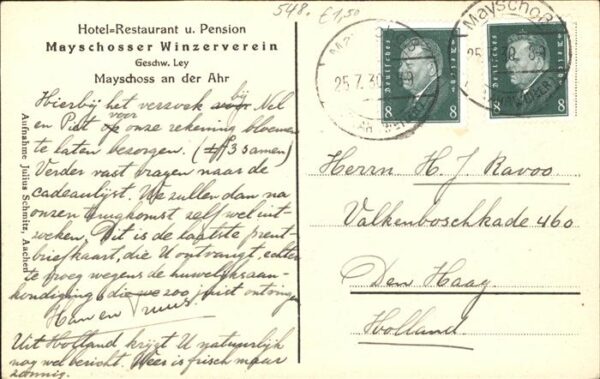 548. £1,50
Hotel=Restaurant u. Pension
Mayschosser Winzerverein
Geschw. Ley
Mayschoss an der Ahr
Aufnahme Julius Schmitz, Aachen
Hierbij het verzoek bij Nel
en Piet voor onze rekening bloemen
te laten bezorgen. (± ƒ3 samen)
Verder vast vragen naar de
cadeaulijst. We zullen dan na
onzen terugkomst zelf wel uit-
zoeken. Dit is de laatste prent-
briefkaart, die U ontvangt, echter
te vroeg wegens de huwelijksaan-
kondiging, die we zoo juist ontvingen
Han en Truus.
Uit Holland krijgt U natuurlijk
nog wel bericht. Weer is frisch maar
zonnig.
Deutsches Reich
8 8
Deutsches Reich
8 8
Mayschoß
25.7.30
Herrn H. J. Ravoo.
Valkenboschkade 460
Den Haag
Holland